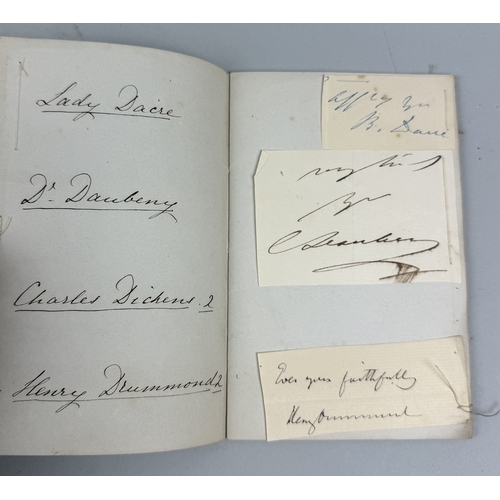 Lady Dacre
Dr. Daubeny
Charles Dickens. 2
Henry Drummond 2
affly yrs
B. Dacre
yr
C Daubeny
Ever yours faithfully
Henry Drummond